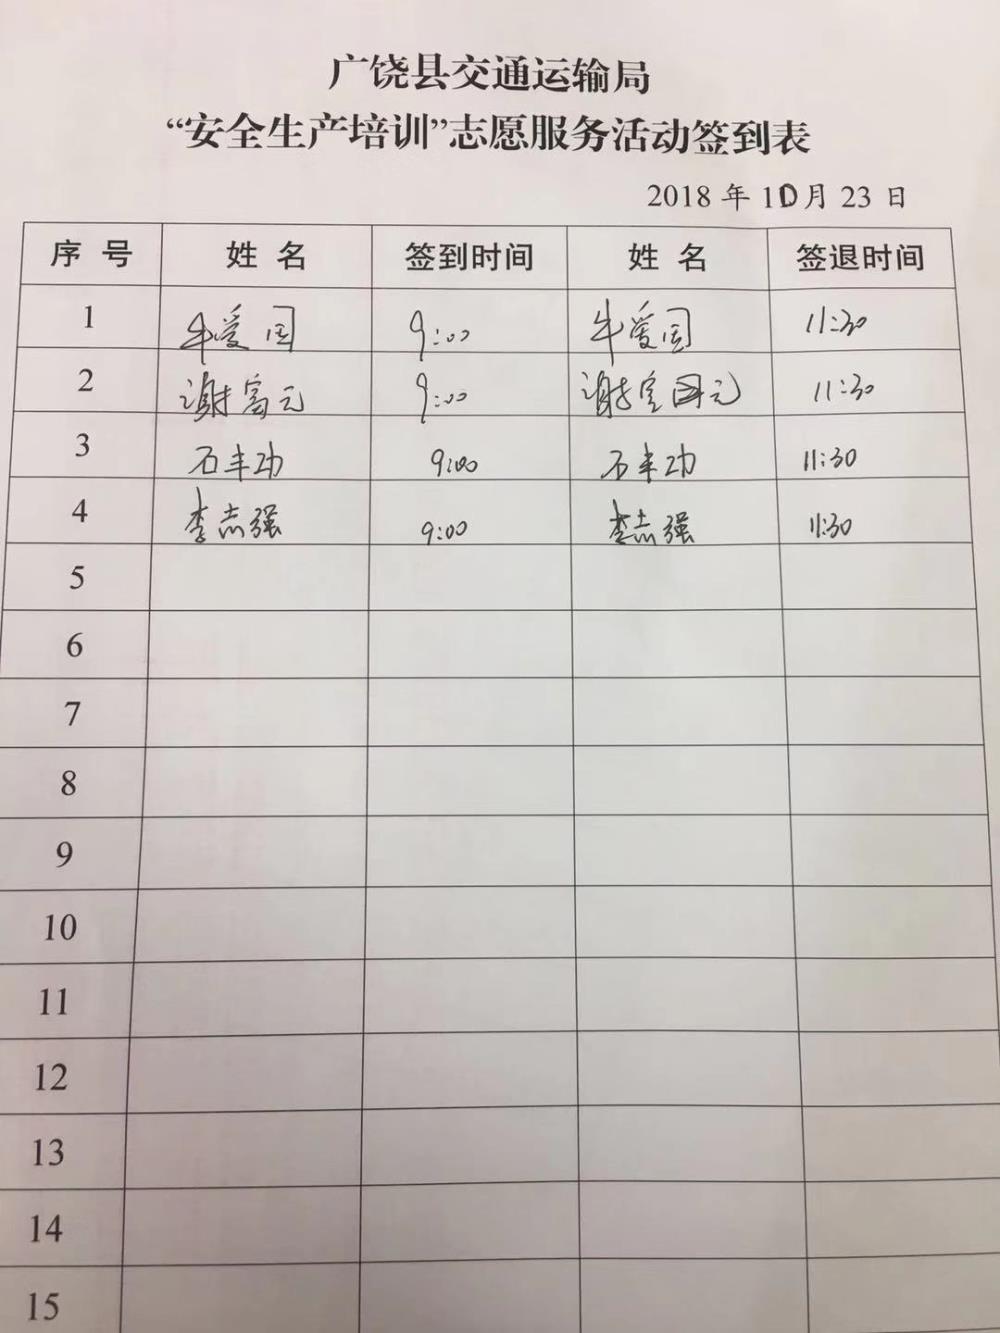 广饶县交通运输局
“安全生产培训”志愿服务活动签到表
2018 年 10月 23 日
序 号 姓 名 签到时间 姓 名 签退时间
1 牛爱国 9:00 牛爱国 11:30
2 谢富元 9:00 谢富元 11:30
3 石丰功 9:00 石丰功 11:30
4 李志强 9:00 李志强 11:30
5
6
7
8
9
10
11
12
13
14
15